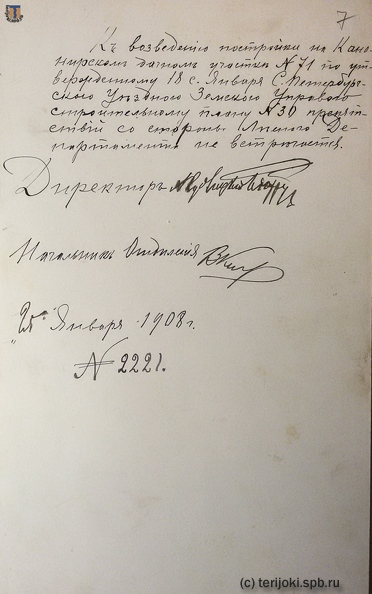 7
Къ возведенію постройки на Кано-
нирскомъ дачномъ участкѣ N 71 по ут-
вержденному 18 с. Января С.Петербург-
скою Уѣздною Земскою Управою
строительному плану N 30 препят-
ствій со стороны Лѣсного Де-
партамента не встрѣчается.
Директоръ
Начальникъ Отдѣленія
"25" Января 1908 г.
N 2221.
(c) terijoki.spb.ru